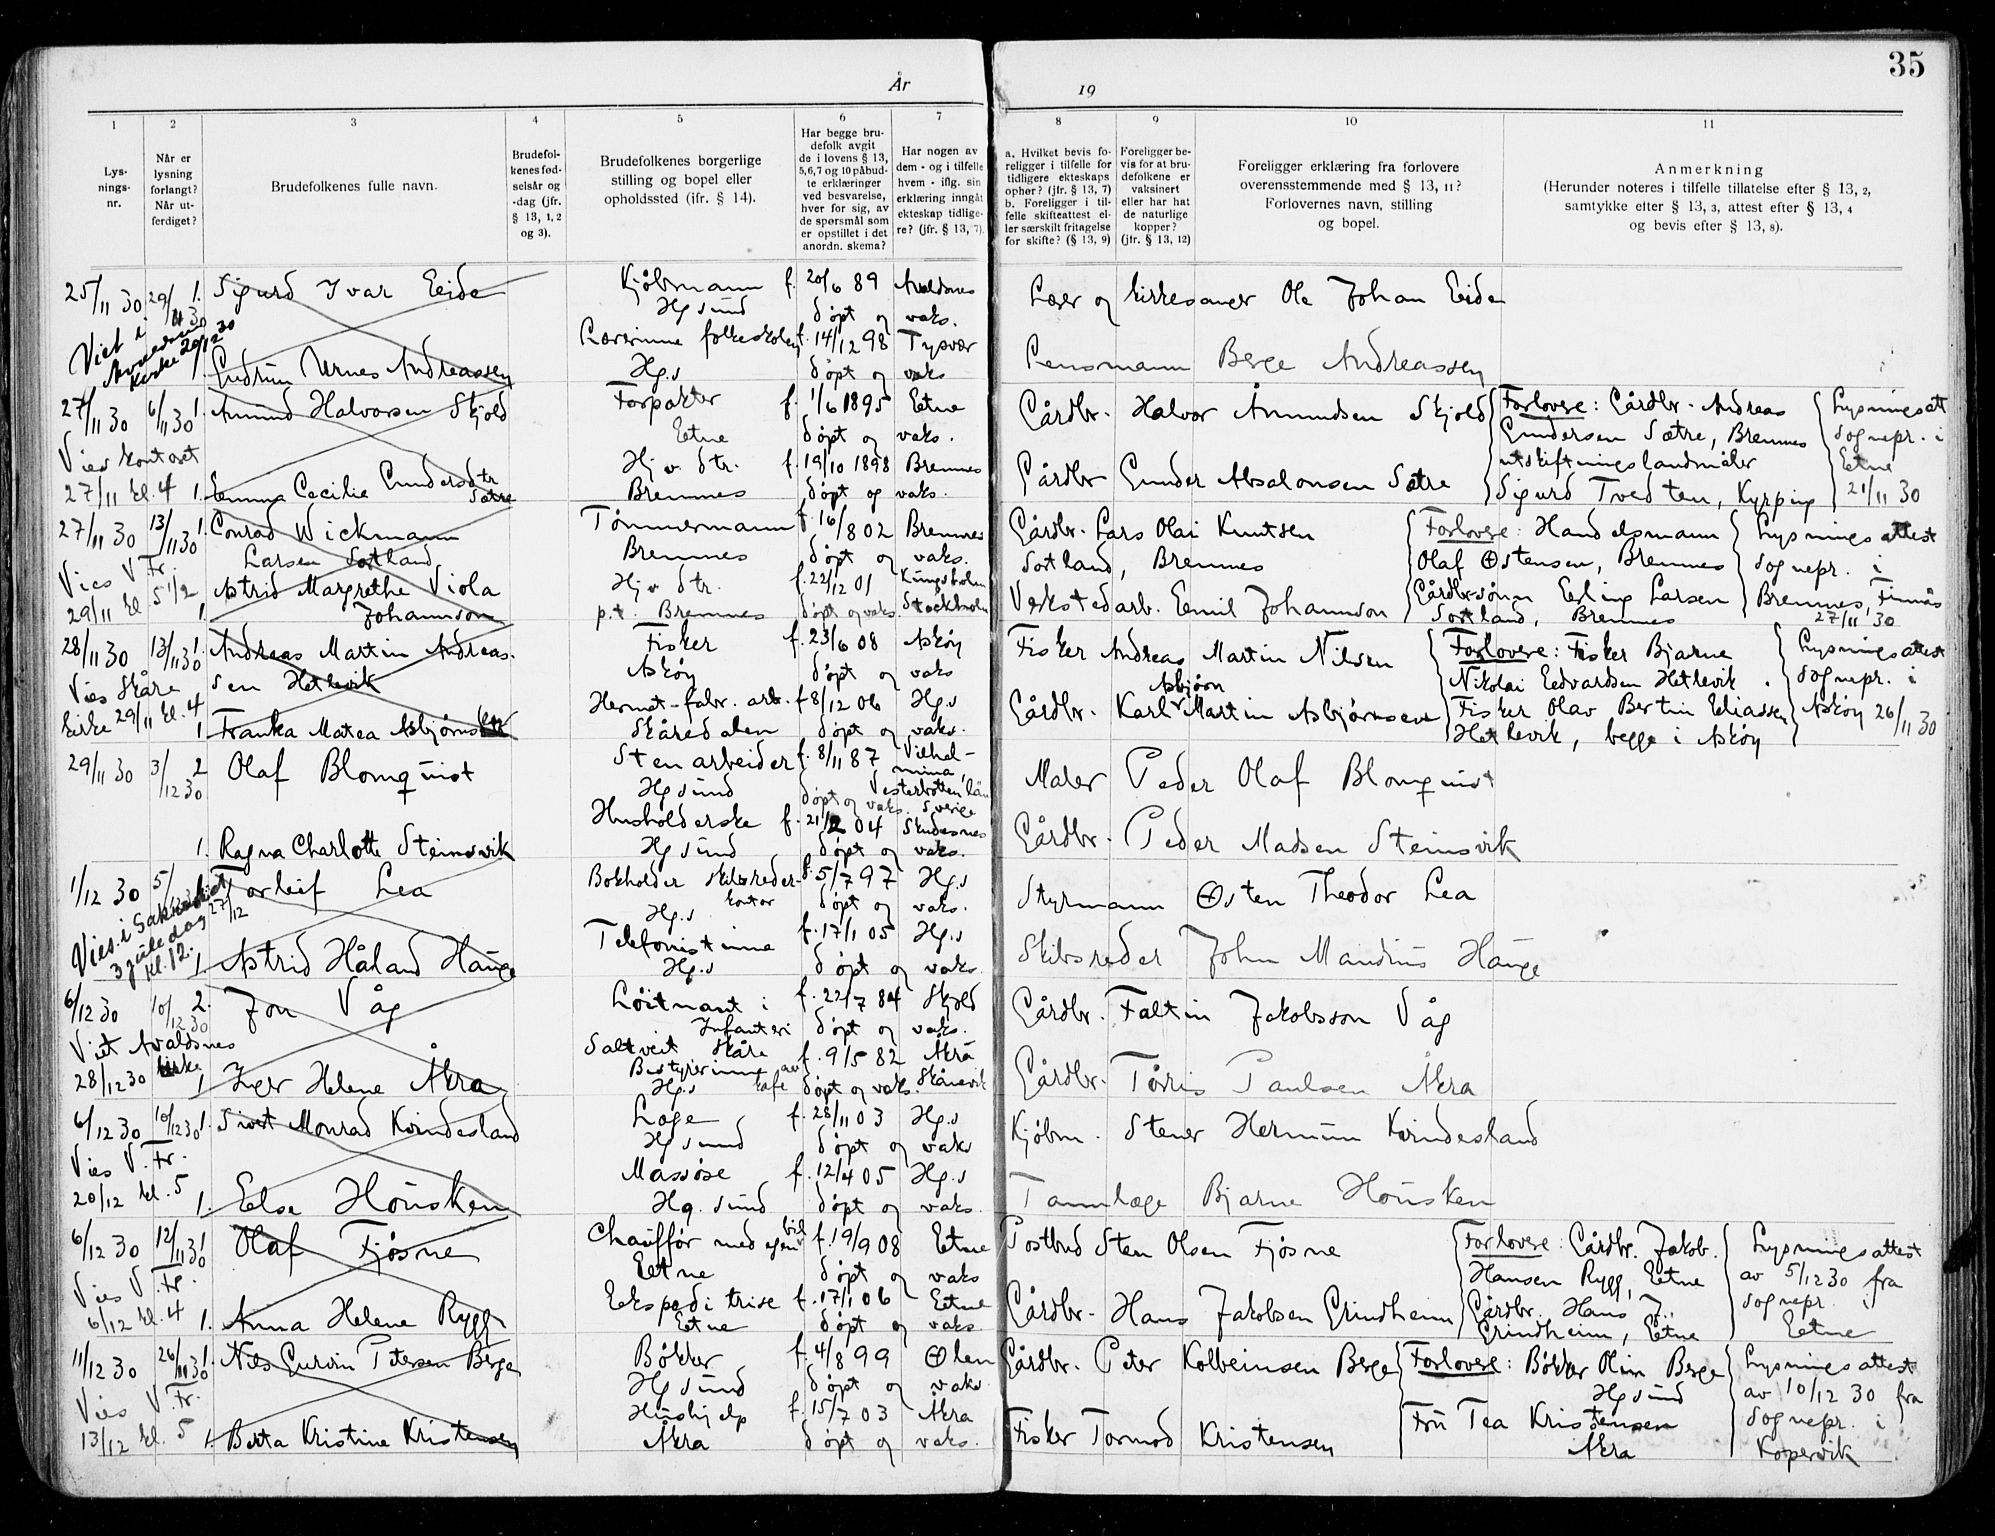 35
År
19
1
2
3
4
5
6
7
8
9
10
11
Lys-
nings-
nr.
Når er
lysning
forlangt?
Når ut-
ferdiget?
Brudefolkenes fulle navn.
Brudefol-
kenes fød-
selsår og
-dag (jfr.
§ 13, 1, 2
og 3).
Brudefolkenes borgerlige
stilling og bopel eller
opholdssted (ifr. § 14).
Har begge bru-
defolk avgit
de i lovens § 13,
5, 6, 7 og 10 påbud-
te erklæringer
ved besvarelse,
hver for sig, av
de spørsmål som
er opstillet i det
anordn. skema?
Har nogen av
dem - og i tilfelle
hvem - iflg. sin
erklæring inngåt
ekteskap tidlige-
re? (jfr. § 13, 7).
a. Hvilket bevis fo-
religger i tilfelle for
tidligere ekteskaps
ophør? (jfr. § 13, 7)
b. Foreligger i til-
felle skifteattest el-
ler særskilt fritagelse
for skifte? (§ 13, 9)
Foreligger be-
vis for at bru-
defolkene er
vaksinert
eller har hat
de naturlige
kopper?
(jfr. § 13, 12)
Foreligger erklæring fra forlovere
overensstemmende med § 13, 11?
Forlovernes navn, stilling
og bopel.
Anmerkning
(Herunder noteres i tilfelle tillatelse efter § 13, 2,
samtykke efter § 13, 3, attest efter § 13, 4
og bevis efter § 13, 8).
25/11 30 29/11 30 1. Sigurd Ivar Eide Kjøbmann f. 20/6 89 Avaldsnes Lærer og kirkesanger Ole Johan Eide
Hgsund døpt og vaks.
Viet i Avaldsnes kirke 20/12 30
1. Gudrun Nernes Andreassen Lærerinne folkeskolen f. 14/12 98 Tysvær Lensmann Berge Andreassen
Hg.s døpt og vaks
27/11 30 6/11 30 1. Amund Halvorsen Skjold Forpakter f. 1/6 1895 Etne Gårdbr. Halvor Åmundsen Skjold Forlovere: Gårdbr. Andreas Lysningsatt
Etne døpt og vaks. Gundersen Sætre, Bremnes sognepr. i
Vies kontoret Hj.v. dtr. f. 19/10 1898 Bremnes utskiftningslandmåler Etne
27/11 kl. 4 1. Emma Cecilie Gundersdtr Sætre Bremnes døpt og vaks. Gårdbr Gunder Absalonsen Sætre Sigurd Tvedten, Kyrping 21/11 30
27/11 30 13/11 30 1. Conrad Wickmann Tømmermann f. 16/8 02 Bremnes Gårdbr. Lars Olai Knutsen Forlovere: Handelsmann Lysningsattest
Larsen Sortland Bremnes døpt og vaks. Sortland, Bremnes Olaf Østensen, Bremnes sognepr. i
Vies V. Fr. 29/11 kl. 5 1/2 Astrid Margrethe Viola Hj.v. dtr. f. 22/12 01 Kungsholm Verkstedarb. Emil Johannson Gårdbr.sønn Erling Larsen Bremnes, Finnås
1. Johannson p.t. Bremnes døpt og vaks. Stockholm Sortland, Bremnes 27/11 30
28/11 30 13/11 30 1. Andreas Martin Andreas- Fisker f. 23/6 08 Askøy Fisker Andreas Martin Nilsen Forlovere: Fisker Bjarne Lysningsattest
sen Hetlevik Askøy døpt og vaks Nikolai Edvardsen Hetlevik. sognepr. i
Vies Skåre kirke 29/11 kl. 4 Hermet-fabr. arb. f. 8/12 06 Hg.s Gårdbr. Karl Asbjørn Martin Asbjørnsen Fisker Olav Bertin Eliassen Askøy 26/11 30
1. Franka Matea Asbjørns Skåredalen døpt og vaks. Hetlevik, begge i Askøy
29/11 30 3/12 30 2 Olaf Blomquist Stenarbeider f. 8/11 87 Vilhel- Maler Peder Olaf Blomquist
mina,
Hgsund døpt og vaks. Vesterbotten län Sverige
1. Ragna Charlotte Steinsvik Husholderske f. 21/2 04 Skudesnes Gårdbr. Peder Madsen Steinsvik
Hgsund døpt og vaks.
1/12 30 5/ Torleif Lea Bokholder skibsreder- f. 5/7 97 Hg.s Styrmann Østen Theodor Lea
kontor
Hg.s døpt og vaks.
Vies i 3 juledag 27/12 kl. 12.
1. Astrid Håland Hauge Telefonistinne f. 17/1 05 Hg.s Skibsreder John Mandius Hauge
Hg.s døpt og vaks.
6/12 30 10/12 30 2. Jon Våg Løitnant i f. 22/7 84 Skjold Gårdbr. Faltin Jakobsson Våg
Infanteri døpt og vaks.
Viet Avaldsnes Saltveit Skåre
28/12 30 kirke 1. Inger Helene Åkra Bestyrerinne av kafe f. 9/5 82 Åkra Gårdbr. Tørris Paulsen Åkra
Hg.s døpt og vaks. Skånevik
6/12 30 10/12 30 1. Sivert Monrad Kvindesland Læge f. 28/11 03 Hg.s Kjøbm. Stener Hermun Kvindesland
Hgsund døpt og vaks
Vies V. Fr. Massøse f. 12/4 05 Hg.s
20/12 kl. 5 1. Else Housken Hg.sund døpt og vaks. Tannlæge Bjarne Housken
6/12 30 12/11 30 1 Olaf Fjøsne Chauffør med egen bil f. 19/9 08 Etne Postbud Sten Olsen Fjøsne Forlovere: Gårdbr. Jakob. Lysningsattest
Etne døpt og vaks Hansen Rygg, Etne av 5/12 30 fra
Vies V. Fr. Ekspeditrise f. 17/1 06 Etne Gårdbr. Hans Jakobsen Grindheim Gårdbr. Hans J. sognepr. i
6/12 kl. 4 1. Anna Helene Rygg Etne døpt og vaks Grindheim, Etne Etne
11/12 30 26/11 30 1. Nils Gurvin Petersen Berge Bøkker f. 4/8 99 Ølen Gårdbr. Peter Kolbeinsen Berge Forlovere: Bøkker Olin Berge Lysningsattest
Hgsund døpt og vaks. Hgsund av 10/12 30 fra
Vies V. Fr. Hushjelp f. 15/7 03 Åkra Fru Tea Kristensen sognepr. i
13/12 kl. 5 1. Berta Kristine Kristensen Åkra døpt og vaks. Fisker Tormod Kristensen Åkra Kopervik